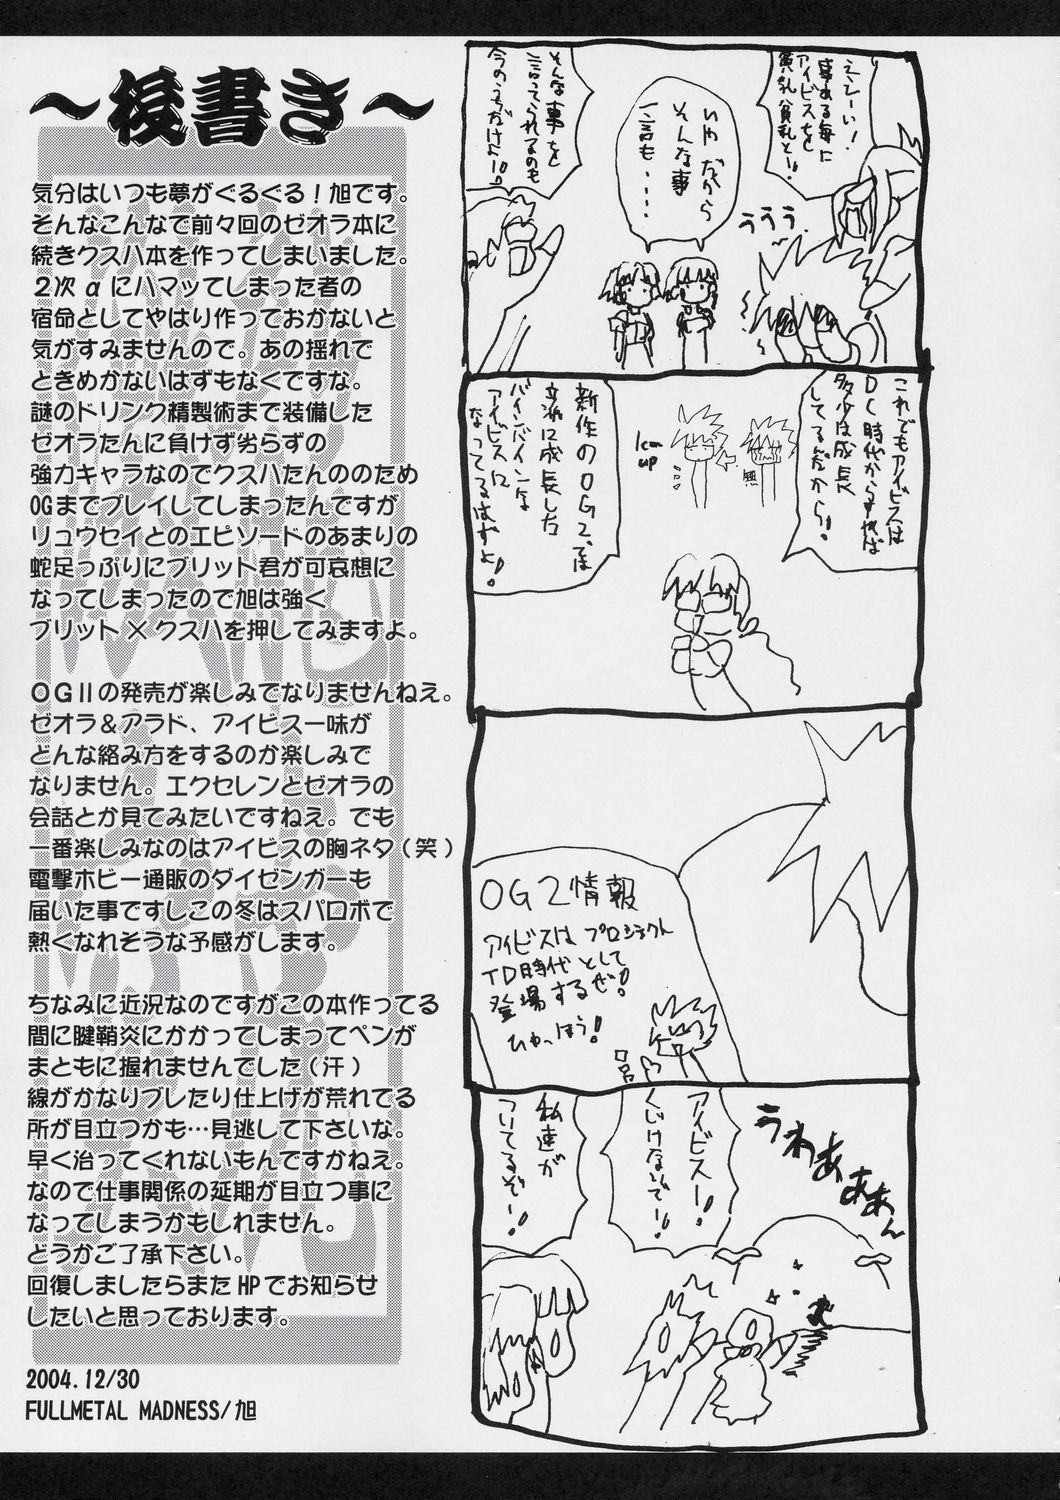 ～後書き～
気分はいつも夢がぐるぐる！旭です。
そんなこんなで前々回のゼオラ本に
続きクスハ本を作ってしまいました。
２次αにハマッてしまった者の
宿命としてやはり作っておかないと
気がすみませんので。あの揺れで
ときめかないはずもなくですな。
謎のドリンク精製術まで装備した
ゼオラたんに負けず劣らずの
強力キャラなのでクスハたんののため
OGまでプレイしてしまったんですが
リュウセイとのエピソードのあまりの
蛇足っぷりにブリット君が可哀想に
なってしまったので旭は強く
ブリット×クスハを押してみますよ。
ＯＧⅡの発売が楽しみでなりませんねえ。
ゼオラ＆アラド、アイビス一味が
どんな絡み方をするのか楽しみで
なりません。エクセレンとゼオラの
会話とか見てみたいですねえ。でも
一番楽しみなのはアイビスの胸ネタ（笑）
電撃ホビー通販のダイゼンガーも
届いた事ですしこの冬はスパロボで
熱くなれそうな予感がします。
ちなみに近況なのですがこの本作ってる
間に腱鞘炎にかかってしまってペンが
まともに握れませんでした（汗）
線がかなりブレたり仕上げが荒れてる
所が目立つかも…見逃して下さいな。
早く治ってくれないもんですかねえ。
なので仕事関係の延期が目立つ事に
なってしまうかもしれません。
どうかご了承下さい。
回復しましたらまたHPでお知らせ
したいと思っております。
2004.12/30
FULLMETAL MADNESS/旭
えぇーい！
事ある毎に
アイビスを
貧乳貧乳と!!
ううう
いやだから
そんな事
一言も・・・・
そんな事を
言ってられるのも
今のうちだけよ!!
これでもアイビスは
DC時代からすれば
多少は成長
してるんだから!
無
1cm
up
新作のOG2では
立派に成長した
バインバインな
アイビスに
なってるはずよ!
OG2情報
アイビスはプロジェクト
TD時代として
登場するぜ!
ひゃっほう!
うわあああん
アイビスー!
くじけないでー!
私達が
ついてるぞー!